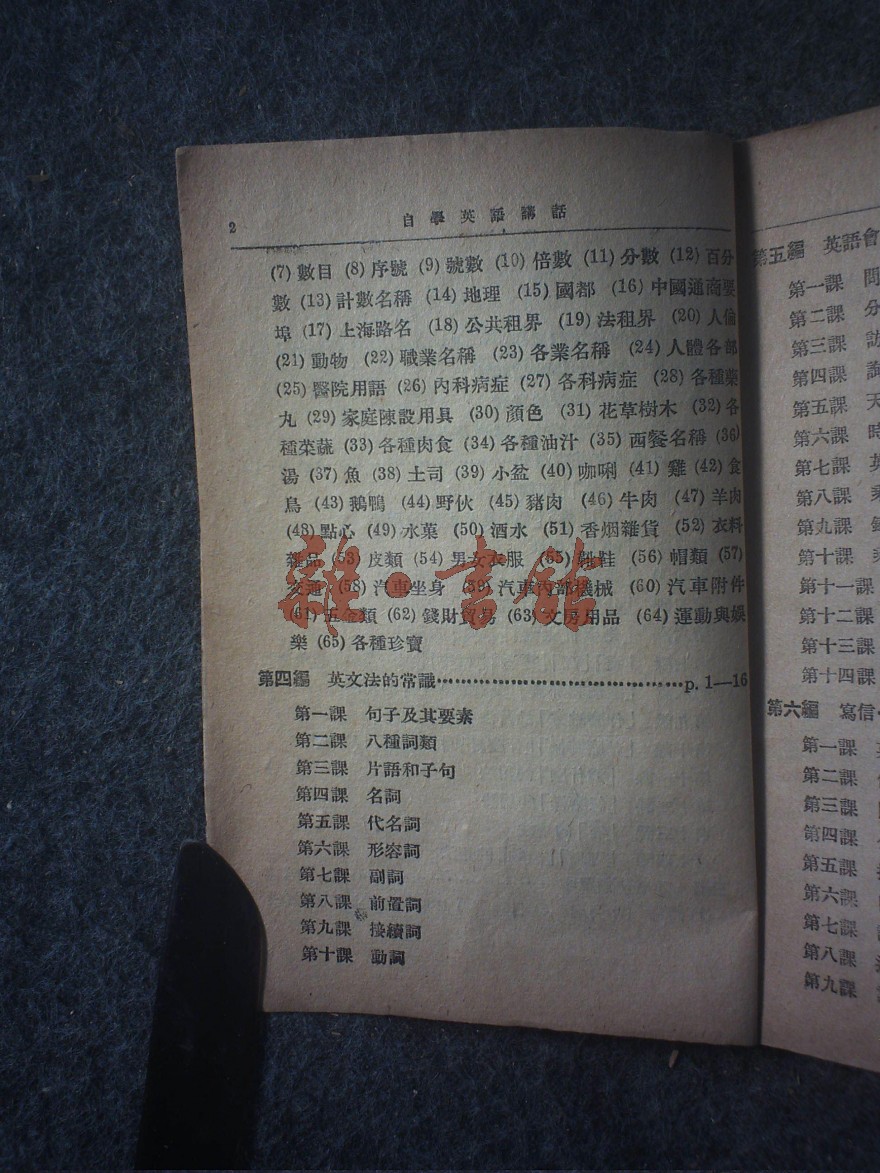 2
自學英語講話
(7) 數目 (8) 序號 (9) 號數 (10) 倍數 (11) 分數 (12) 百分
數 (13) 計數名稱 (14) 地理 (15) 國都 (16) 中國通商要
埠 (17) 上海路名 (18) 公共租界 (19) 法租界 (20) 人倫
(21) 動物 (22) 職業名稱 (23) 各業名稱 (24) 人體各部
(25) 醫院用語 (26) 內科病症 (27) 各科病症 (28) 各種藥
丸 (29) 家庭陳設用具 (30) 顏色 (31) 花草樹木 (32) 各
種菜蔬 (33) 各種肉食 (34) 各種油汁 (35) 西餐名稱 (36)
湯 (37) 魚 (38) 土司 (39) 小盆 (40) 咖唎 (41) 雞 (42) 食
鳥 (43) 鵝鴨 (44) 野伙 (45) 豬肉 (46) 牛肉 (47) 羊肉
(48) 點心 (49) 水菓 (50) 酒水 (51) 香烟雜貨 (52) 衣料
雜品 (53) 皮類 (54) 男女衣服 (55) 靴鞋 (56) 帽類 (57)
交通 (58) 汽車坐身 (59) 汽車內部機械 (60) 汽車附件
(61) 五金類 (62) 錢財貿易 (63) 文房用品 (64) 運動與娛
樂 (65) 各種珍寶
第四編 英文法的常識……………………p. 1—16
第一課 句子及其要素
第二課 八種詞類
第三課 片語和子句
第四課 名詞
第五課 代名詞
第六課 形容詞
第七課 副詞
第八課 前置詞
第九課 接續詞
第十課 動詞
雜·書館
第五編 英語會
第一課 問
第二課 分
第三課 訪
第四課 詢
第五課 天
第六課 時
第七課 英
第八課
第九課
第十課
第十一課
第十二課
第十三課
第十四課
第六編 寫信
第一課
第二課
第三課
第四課
第五課
第六課
第七課
第八課
第九課